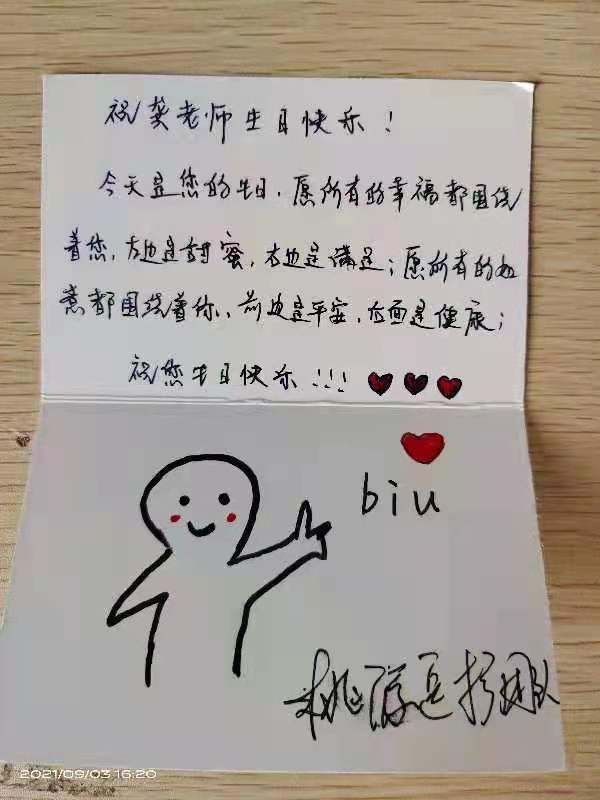 祝龚老师生日快乐!
今天是您的生日,愿所有的幸福都围绕
着您,左边是甜蜜,右边是满足;愿所有的如
意都围绕着你,前边是平安,后面是健康;
祝您生日快乐!!!
biu
2021/09/03 16:20